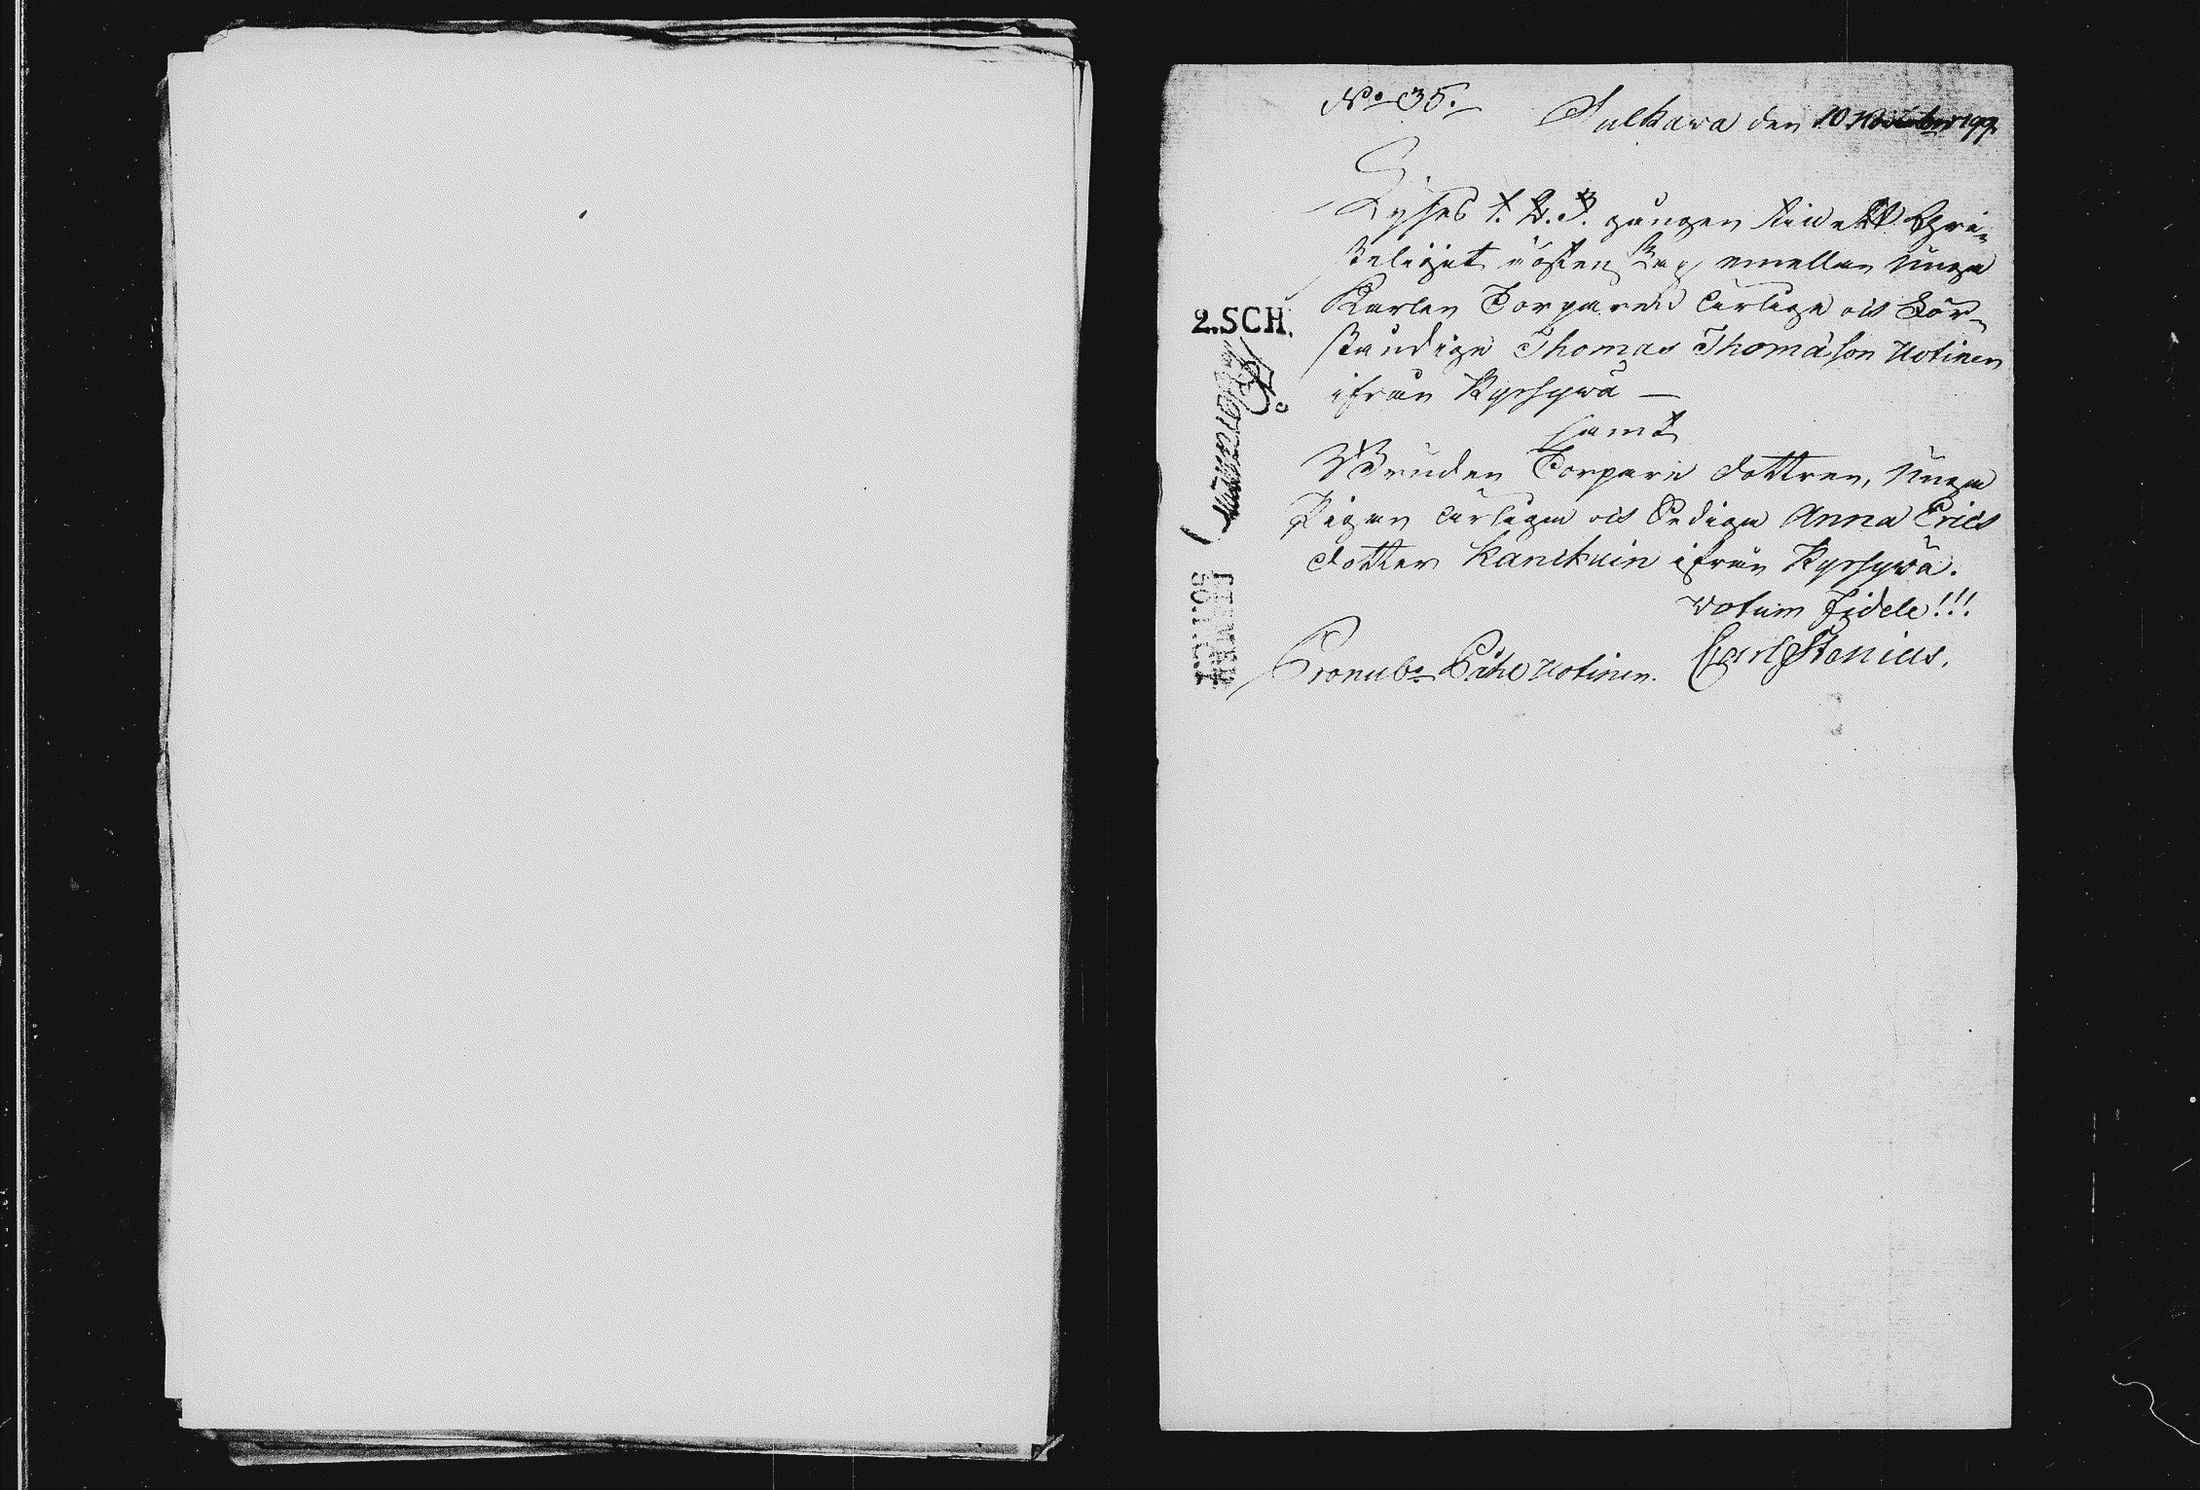 No 35.
Sulkawa den 10 November 197.
Lyses 1. 2. 3. gången till ett Chri-
steligit ächten skap emellan unga
Karlen Torparen ärlige och För-
ståndige Thomas Thomasson Uotinen
ifrån Kyrsywä —
samt
Bruden Torpare dottren, unga
Pigan ärliga och Sediga Anna Erics
dotter Kanckuin ifrån Kyrsywä.
votum fidele!!!
Carl Stenius.
Pronubo Påhl Uotinen.
2. SCH.